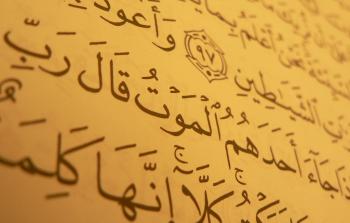 نَحْنُ أَعْلَمُ بِمَا
ٱلشَّيَٰطِينِ ٩٧ وَأَعُوذُ
جَآءَ أَحَدَهُمُ ٱلْمَوْتُ قَالَ رَبِّ
كَلَّآ إِنَّهَا كَلِمَة